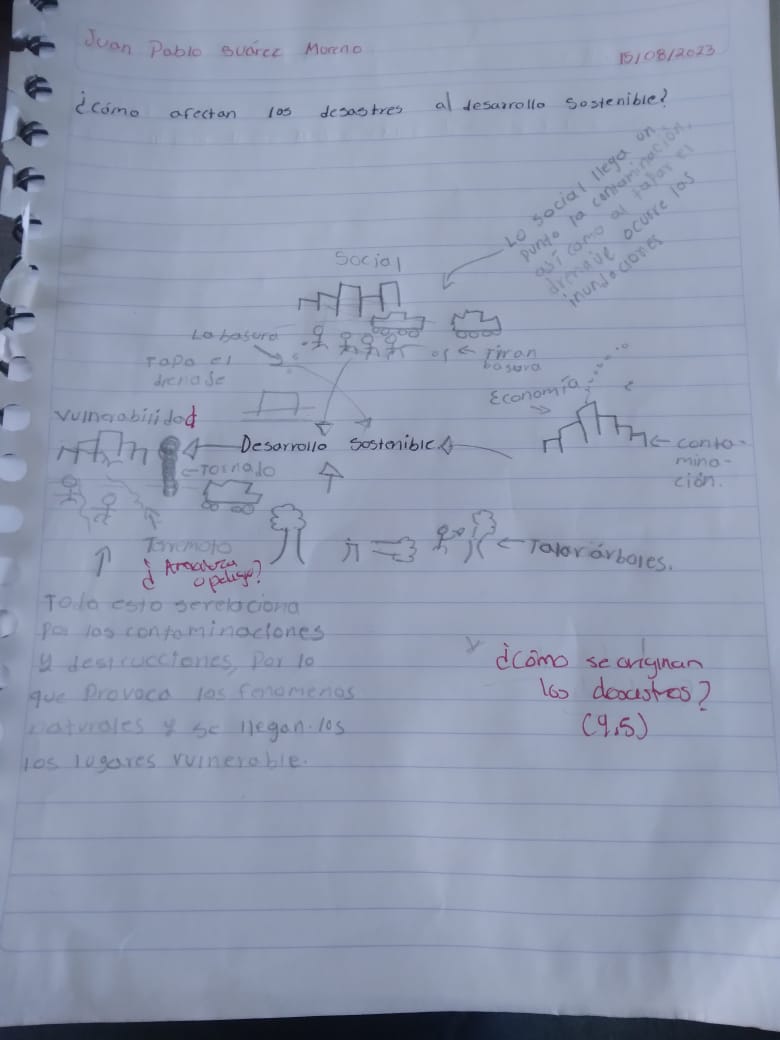 Juan Pablo Suárez Moreno
15/08/2023
¿Cómo afectan los desastres al desarrollo sostenible?
Lo social llega un
punto la contaminación,
así como al tapar el
drenaje ocurre las
inundaciones
Social
La basura
Tapa el
drenaje
Tiran
basura
Economía
Vulnerabilidad
Desarrollo Sostenible
conta-
mina-
ción.
Tornado
Terremoto
Talar árboles.
¿Amenaza
o peligro?
Todo esto se relaciona
Por las contaminaciones
y destrucciones, Por lo
que Provoca los fenomenos
naturales y se llegan los
los lugares vulnerable.
¿Cómo se originan
los desastres?
(9.5)